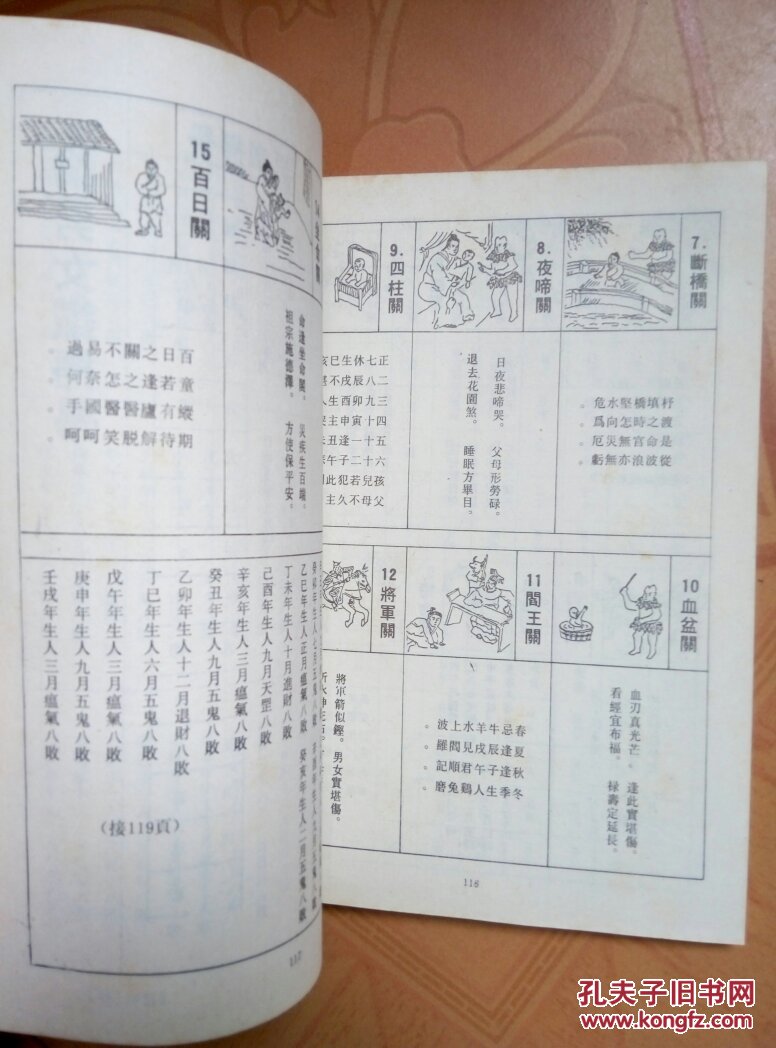 7.斷橋關
填橋堅水危。
渡之時怎向爲。
是命宮無災厄。
從波浪亦無虧。
8.夜啼關
日夜悲啼哭。 父母形勞碌。
退去花園煞。 睡眠方畢目。
9.四柱關
正七休生巳亥
二八辰戌不
三九卯酉生人
四十寅申主
五十一逢丑
六十二子午
孩兒若犯此
父母不久主
10血盆關
血刃真光芒。 逢此實堪傷。
看經宜布福。 祿壽定延長。
11閻王關
春忌牛羊水上波。
夏逢辰戌見閻羅。
秋逢子午君順記。
冬季生人鷄兔磨。
12將軍關
將軍箭似鏗。男女實堪傷。
116
14坐命關
命逢坐命關。 災疾生百端。
祖宗施德澤。 方使保平安。
15百日關
百日之關不易過。
童若逢之怎奈何。
縱有廬醫醫國手。
期待解脱笑呵呵。
癸卯年生人七月五鬼八敗
乙巳年生人正月瘟氣八敗 癸亥年生人二月五鬼八敗
丁未年生人十月進財八敗
己酉年生人九月天罡八敗
辛亥年生人三月瘟氣八敗
癸丑年生人九月五鬼八敗
乙卯年生人十二月退財八敗
丁巳年生人六月五鬼八敗
戊午年生人三月瘟氣八敗
庚申年生人九月五鬼八敗
壬戌年生人三月瘟氣八敗
(接119頁)
117
孔夫子旧书网
WWW.KONGFZ.COM